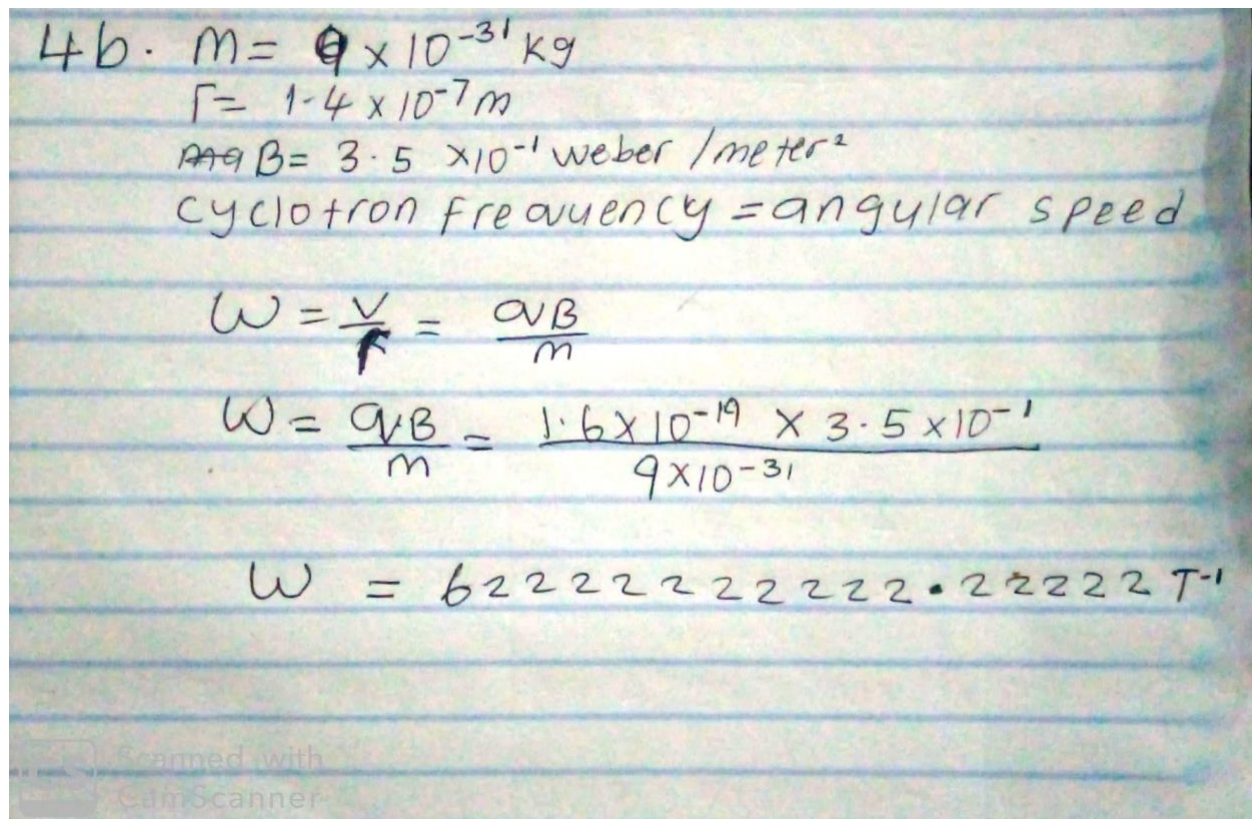 4b. m= 9 x 10-³¹ kg
r= 1.4 x 10-⁷ m
B= 3.5 x10-¹ weber /meter²
cyclotron frequency = angular speed
W = v/r = qB/m
W = qB/m = 1.6x10-¹⁹ x 3.5x10-¹ / 9x10-³¹
W = 62222222222.22222 T-¹
Scanned with
CamScanner